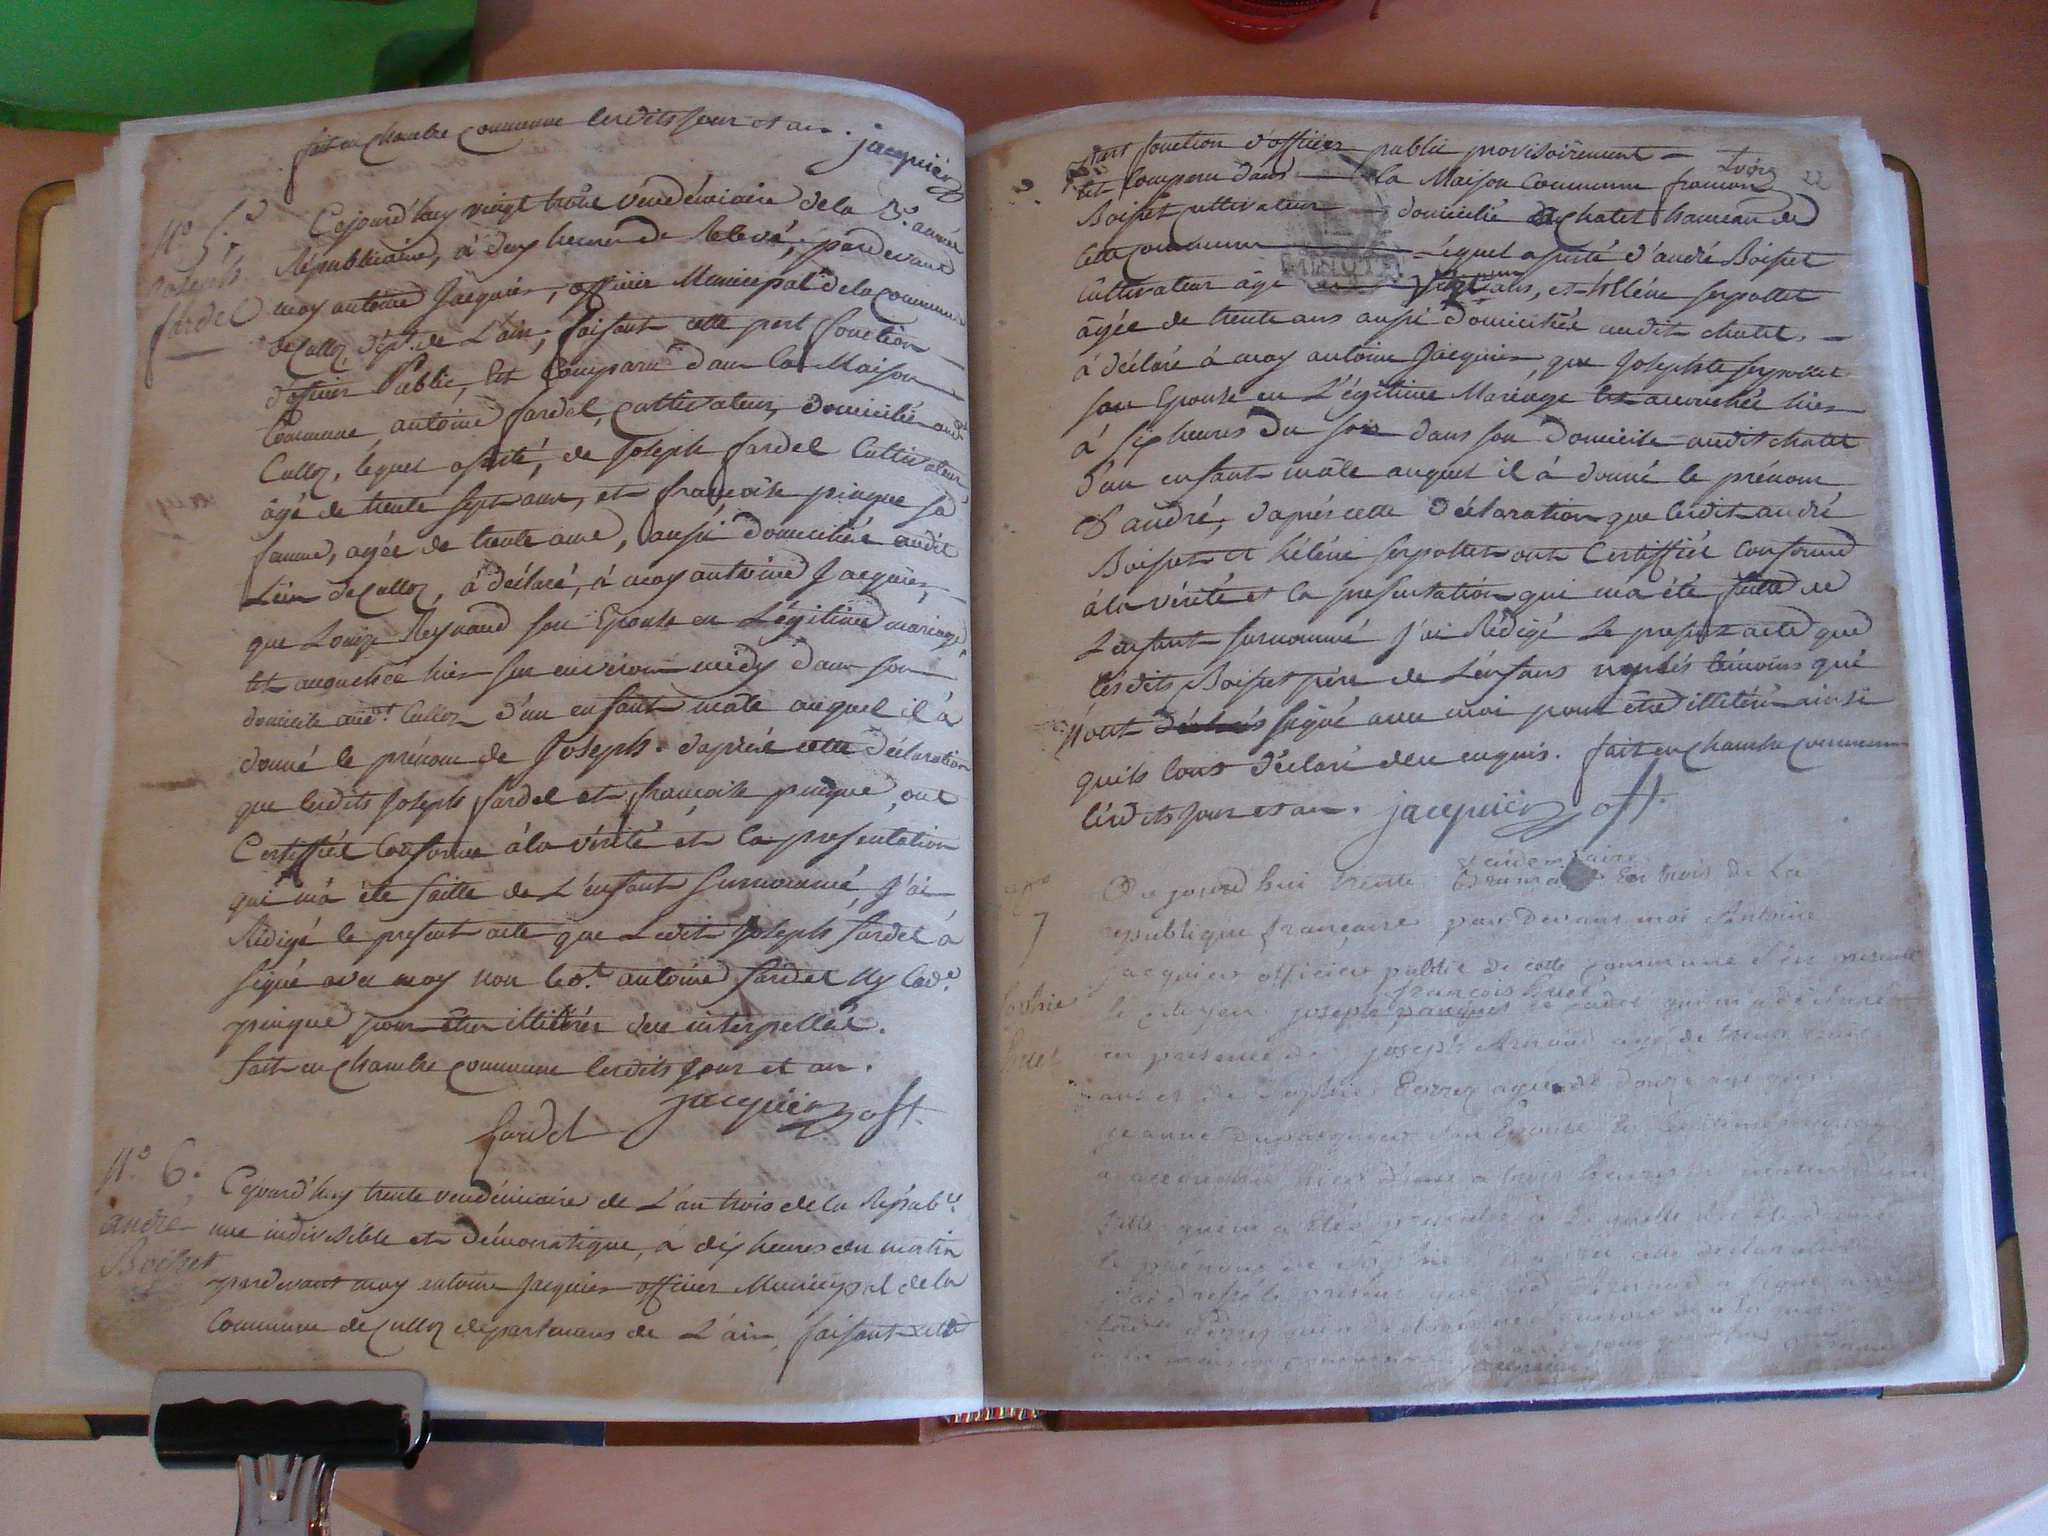 fait en chambre commune lesdits jour et an.
jacquier
N.o 5.e
joseph
fardel
Cejourd'huy vingt trois vendémiaire de la 3.e année
Républicaine, à deux heures de Relevé, pardevant
moy antoine Jacquier, officier Municipal de la commune
de Culloz dépt. de L'ain, faisant cette part fonction
d'officier Public, Est Comparu dans la Maison
Commune, antoine fardel, cultivateur, domicilié aud.t
Culloz, lequel assisté, de Joseph fardel Cultivateur
âgé de trente sept ans, et françoise pingue sa
famme, agée de trente ans, aussi domiciliée audit
Lieu de Culloz, à déclaré, à moy antoine Jacquier,
que Louize Reynaud son Epouse en Légitime mariage,
Est accouchée hier sur environ midy dans son
domicile aud.t Culloz d'un enfant mâle auquel il à
donné le prénom de Joseph. d'après cette déclaration
que lesdits Joseph fardel et françoise pingue, ont
Certiffiée Conforme à la vérité et la présentation
qui m'a été faitte de L'enfant surnommé, J'ai
Rédigé le présent acte que Ledit Joseph fardel à
signé avec moy non led.t antoine fardel Ny lad.e
pingue pour être illitérés de ce interpellés.
fait en chambre commune lesdits jour et an.
jacquier off.
fardel
N.o 6.
andré
Boisset
Cejourd'huy trente vendémiaire de L'an trois de la Répub.e
une indivisible et démocratique, à dix heures du matin
pardevant moy antoine Jacquier officier Municipal de la
Commune de Culloz département de L'ain, faisant cette
part fonction d'officier public provisoirement
Est Comparu dans la Maison Commune françois
22
Boisset cultivateur domicilié à chatel hameau de
cette commune lequel assisté d'andré Boisset
MINUTE
cultivateur âgé ans, et hélléne serpollet
âgée de trente ans aussi domiciliée audit chatel.
à déclaré à moy antoine Jacquier, que Josephte serpollet
son Epouse en Légitime Mariage Est accouchée hier
à six heures du soir dans son domicile audit chatel
d'un enfant mâle auquel il à donné le prénom
d'andré, d'après cette déclaration que lesdit andré
Boisset et héléne serpollet ont Certiffiée Conforme
à la vérité et la présentation qui m'a été faitte de
L'enfant surnommé J'ai Rédigé Le present acte que
lesdits Boisset père de L'enfans témoins que
n'ont signé avec moi pour être illitérés ainsi
quils l'ont déclaré de ce enquis. fait en chambre commune
lesdits jour et an. jacquier off.
7
Sophie
huet
vendemiaire
Ce jourd hui trente an trois de La
republique française par devant moi Antoine
jacquier officier public de cette commune s'est présenté
françois huet
le citoyen joseph qui m a déclaré
en présence de joseph Arnaud age de trente
ans et de Sophie agée de douze ans que
jeanne son Epouse En Légitime mariage
a accouché hier a trois heures
fille à laquelle
le prénom de Sophie d'après cette déclaration
j'ai dressé le présent que led. Arnaud a signé
jacquier